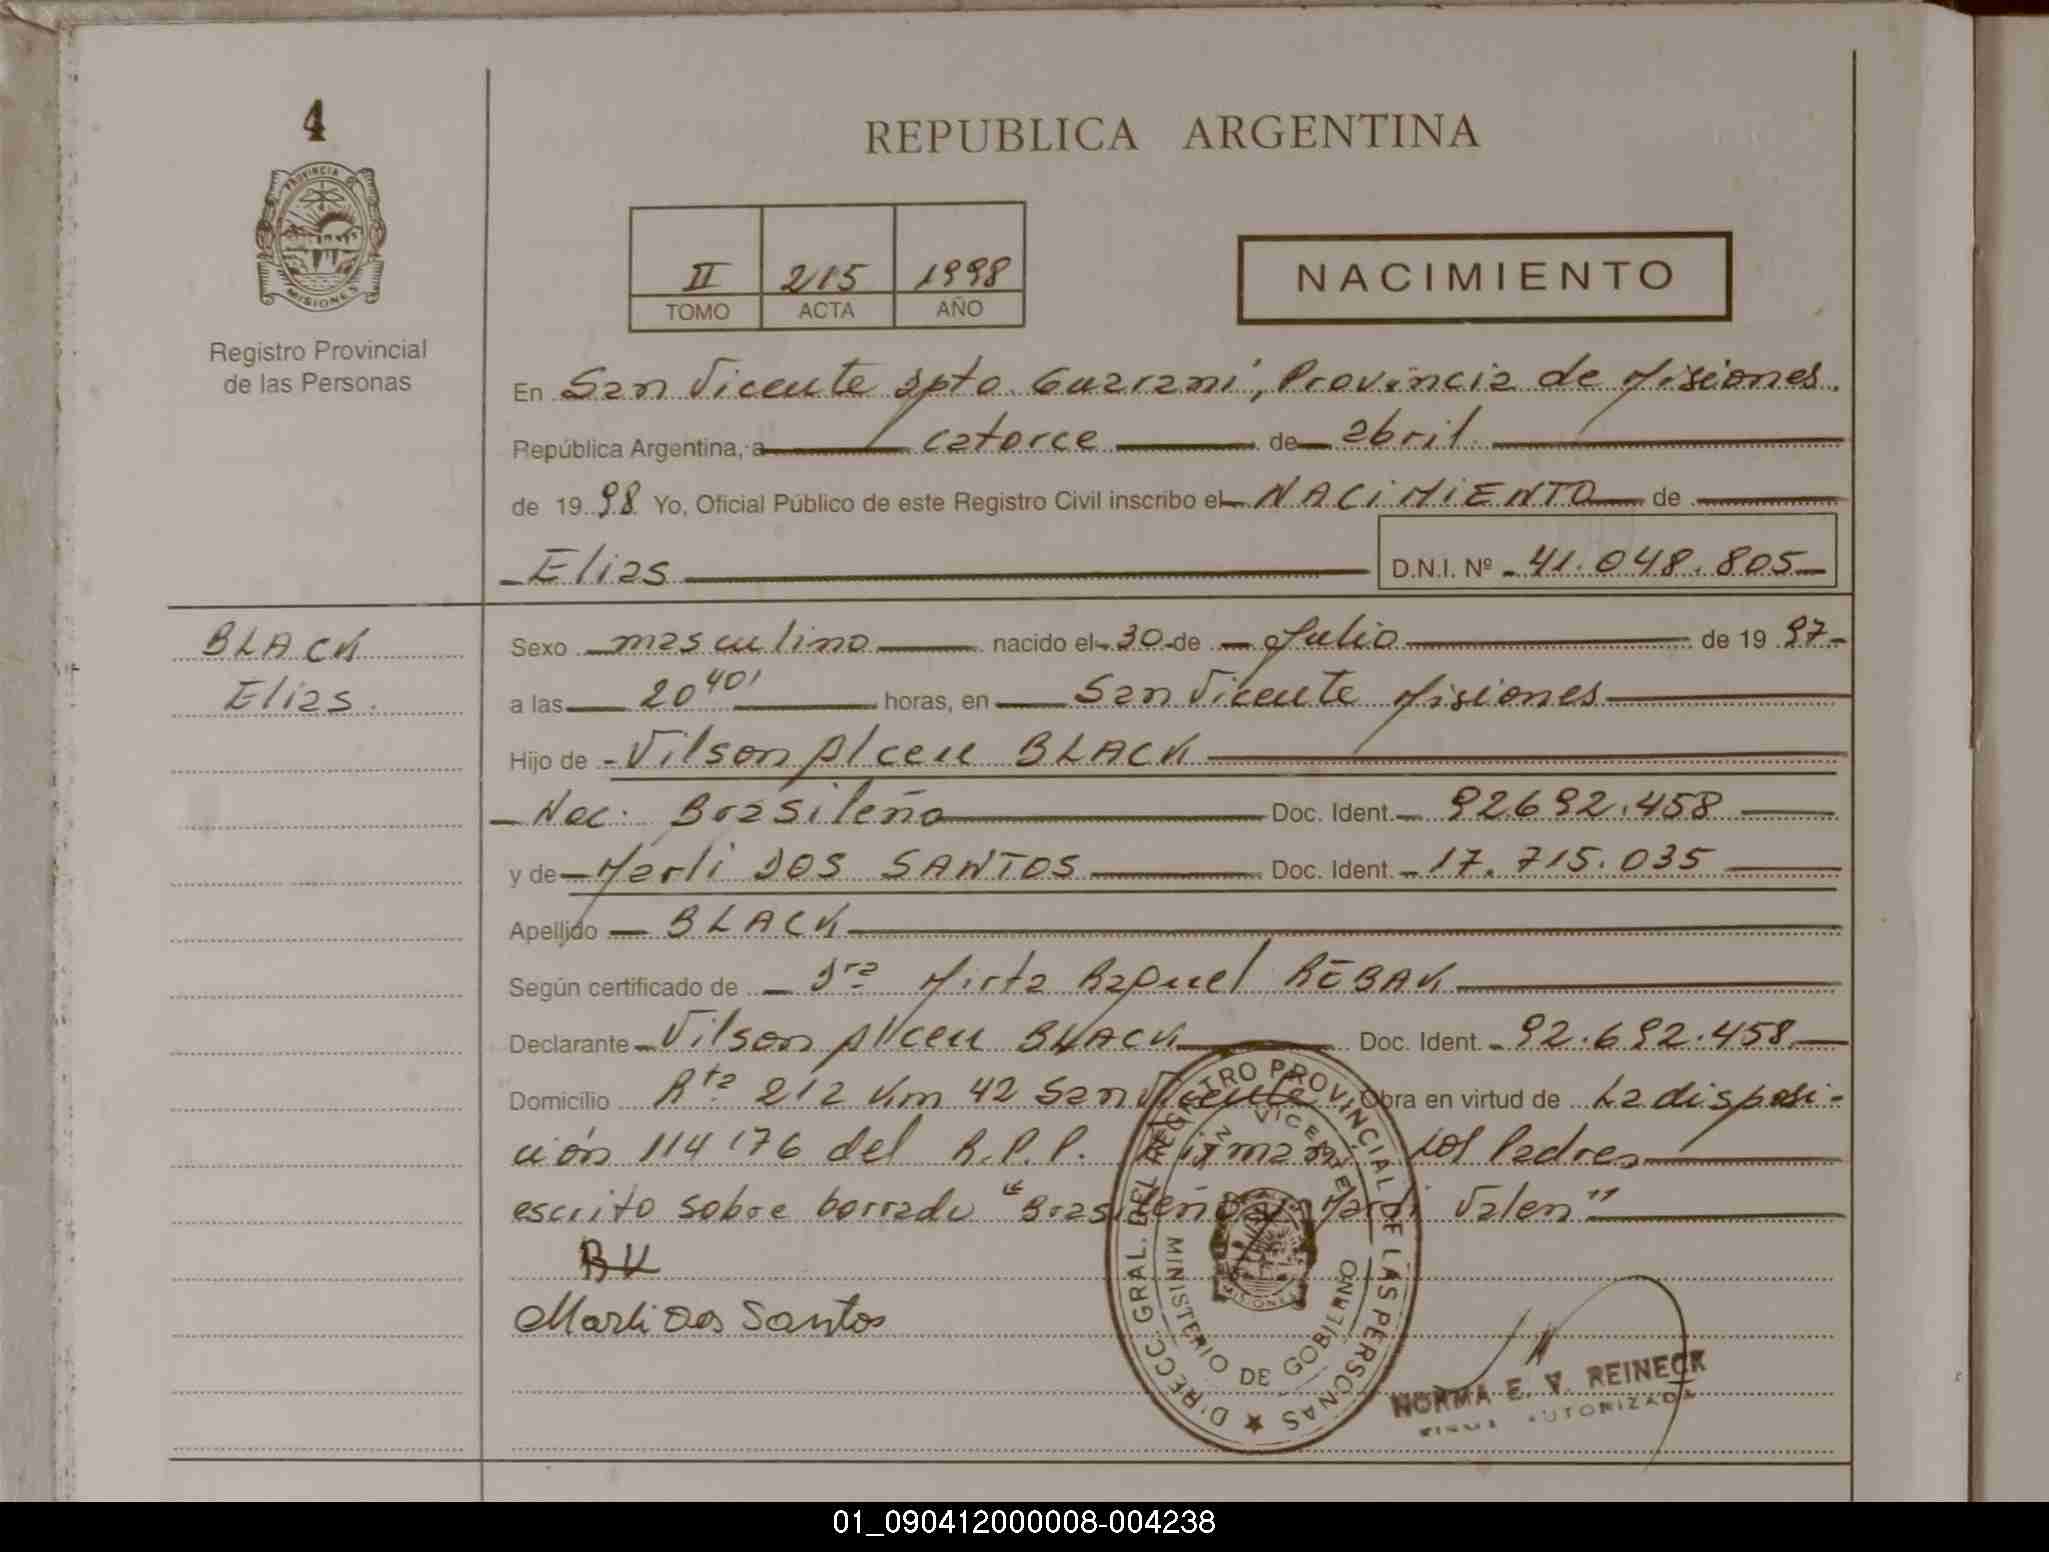 4
PROVINCIA DE
MISIONES
Registro Provincial
de las Personas
REPUBLICA ARGENTINA
II 215 1998
TOMO ACTA AÑO
NACIMIENTO
En San Vicente Dpto. Guarani, Provincia de Misiones.
República Argentina, a catorce de abril
de 1998 Yo, Oficial Público de este Registro Civil inscribo el NACIMIENTO de
Elias D.N.I. Nº 41.048.805
BLACK
Elias.
Sexo masculino nacido el 30 de Julio de 1997
a las 20 40' horas, en San Vicente Misiones
Hijo de Vilson Alceu BLACK
Nac: Brasileño Doc. Ident. 92692.458
y de Marli DOS SANTOS Doc. Ident. 17.715.035
Apellido BLACK
Según certificado de Dra Mirta Raquel REBAK
Declarante Vilson Alceu BLACK Doc. Ident. 92.692.458
Domicilio Rta 212 Km 42 San Vicente Obra en virtud de La disposi-
ción 114/76 del R.P.P. Firman Los Padres
escrito sobre borrado "Brasileño, Marli Valen"
Marli Dos Santos
DIRECC. GRAL. DEL REGISTRO PROVINCIAL DE LAS PERSONAS
SAN VICENTE
MINISTERIO DE GOBIERNO
MISIONES
NORMA E. V. REINECK
FIRMA AUTORIZADA
01_090412000008-004238